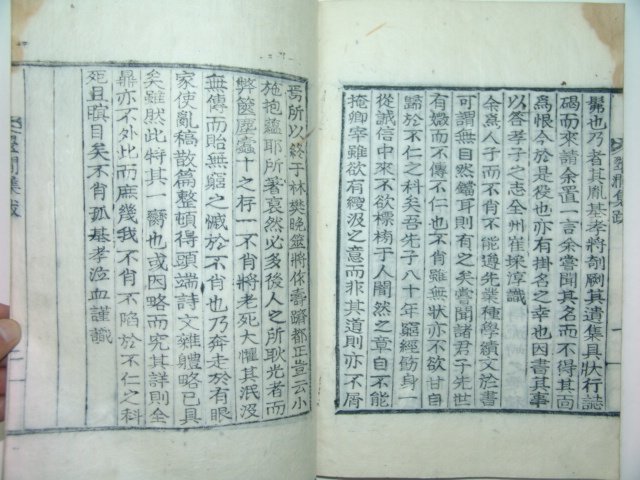 鬱也乃者其胤基孝將剞劂其遺集具狀行誌
碣而來請余置一言余嘗聞其名而不得其面
爲恨今於是役也亦有掛名之幸也因書其事
以答孝子之志全州崔埰淳識
余爲人子而不肖不能遵先業種學績文於書
可謂無目自然錯耳則有之矣嘗聞諸君子先世
有媺而不傳不仁也不肖雖無狀亦不欲甘自
歸於不仁之科矣吾先子八十年窮經飭身一
從誠信中來不欲標榜于人闇然之章自不能
掩卿宰雖有綾汲之意而非其道則亦不屑
焉所以終于林樊晩筮將仕壽躋都正豈云小
施抱蘊耶所著哀然必多後人之所耿光者而
弊篋塵蠹十之存一不肖將老死大懼其泯沒
無傳而貽無窮之慽於不肖也乃奔走於有眼
家使亂稿散篇整頓得頭端詩文雜體略已具
矣雖然此特其一臠也或因略而究其詳則全
鼎亦不外此而庶幾我不肖不陷於不仁之科
死且瞑目矣不肖孤基孝泣血謹識